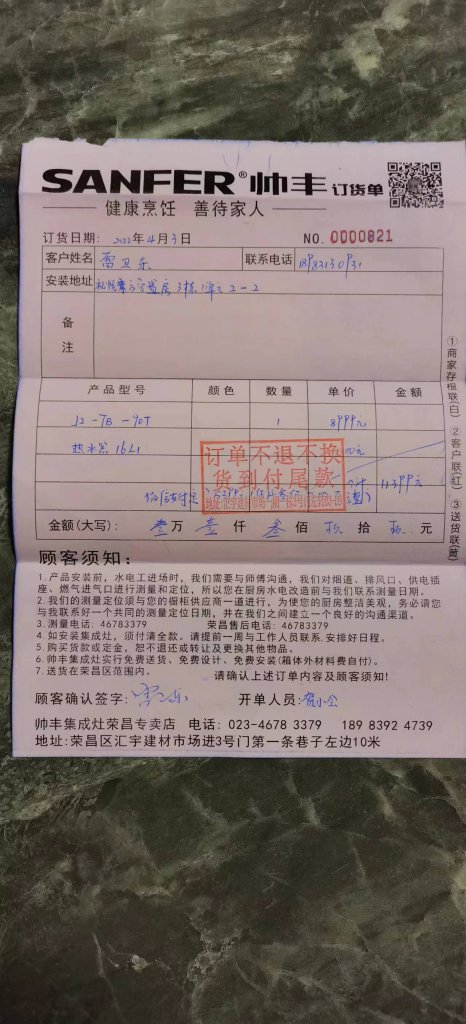 SANFER® 帅丰 订货单
健康烹饪 善待家人
订货日期: 2022年4月3日 NO. 0000821
客户姓名 联系电话 18983130931
安装地址 3栋 2-2
备注
产品型号 颜色 数量 单价 金额
J2-7B-90T 1 8999元
热水器16L1
订单不退不换
货到付尾款
11399元
金额(大写): 壹万 壹仟 叁佰 玖拾 玖元
①商家存根联(白) ②客户联(红) ③送货联(黄)
顾客须知:
1. 产品安装前,水电工进场时,我们需要与师傅沟通,我们对烟道、排风口、供电插
座、燃气进气口进行测量和定位,所以您在厨房水电改造前与我们联系测量日期。
2. 我们的测量定位须与您的橱柜供应商一道进行,为使您的厨房整洁美观,务必请您
与我联系好一个共同的测量定位日期,并在我们之间建立一个良好的沟通渠道。
3. 测量电话: 46783379 荣昌售后电话: 46783379
4. 如安装集成灶,须付清全款。请提前一周与工作人员联系,安排好日程。
5. 购买货款或定金,恕不退还或转让及更换其他物品。
6. 帅丰集成灶实行免费送货、免费设计、免费安装(箱体外材料费自付)。
7. 送货在荣昌区范围内。 请确认上述订单内容及顾客须知!
顾客确认签字: 开单人员:
帅丰集成灶荣昌专卖店 电话: 023-4678 3379 189 8392 4739
地址: 荣昌区汇宇建材市场进3号门第一条巷子左边10米